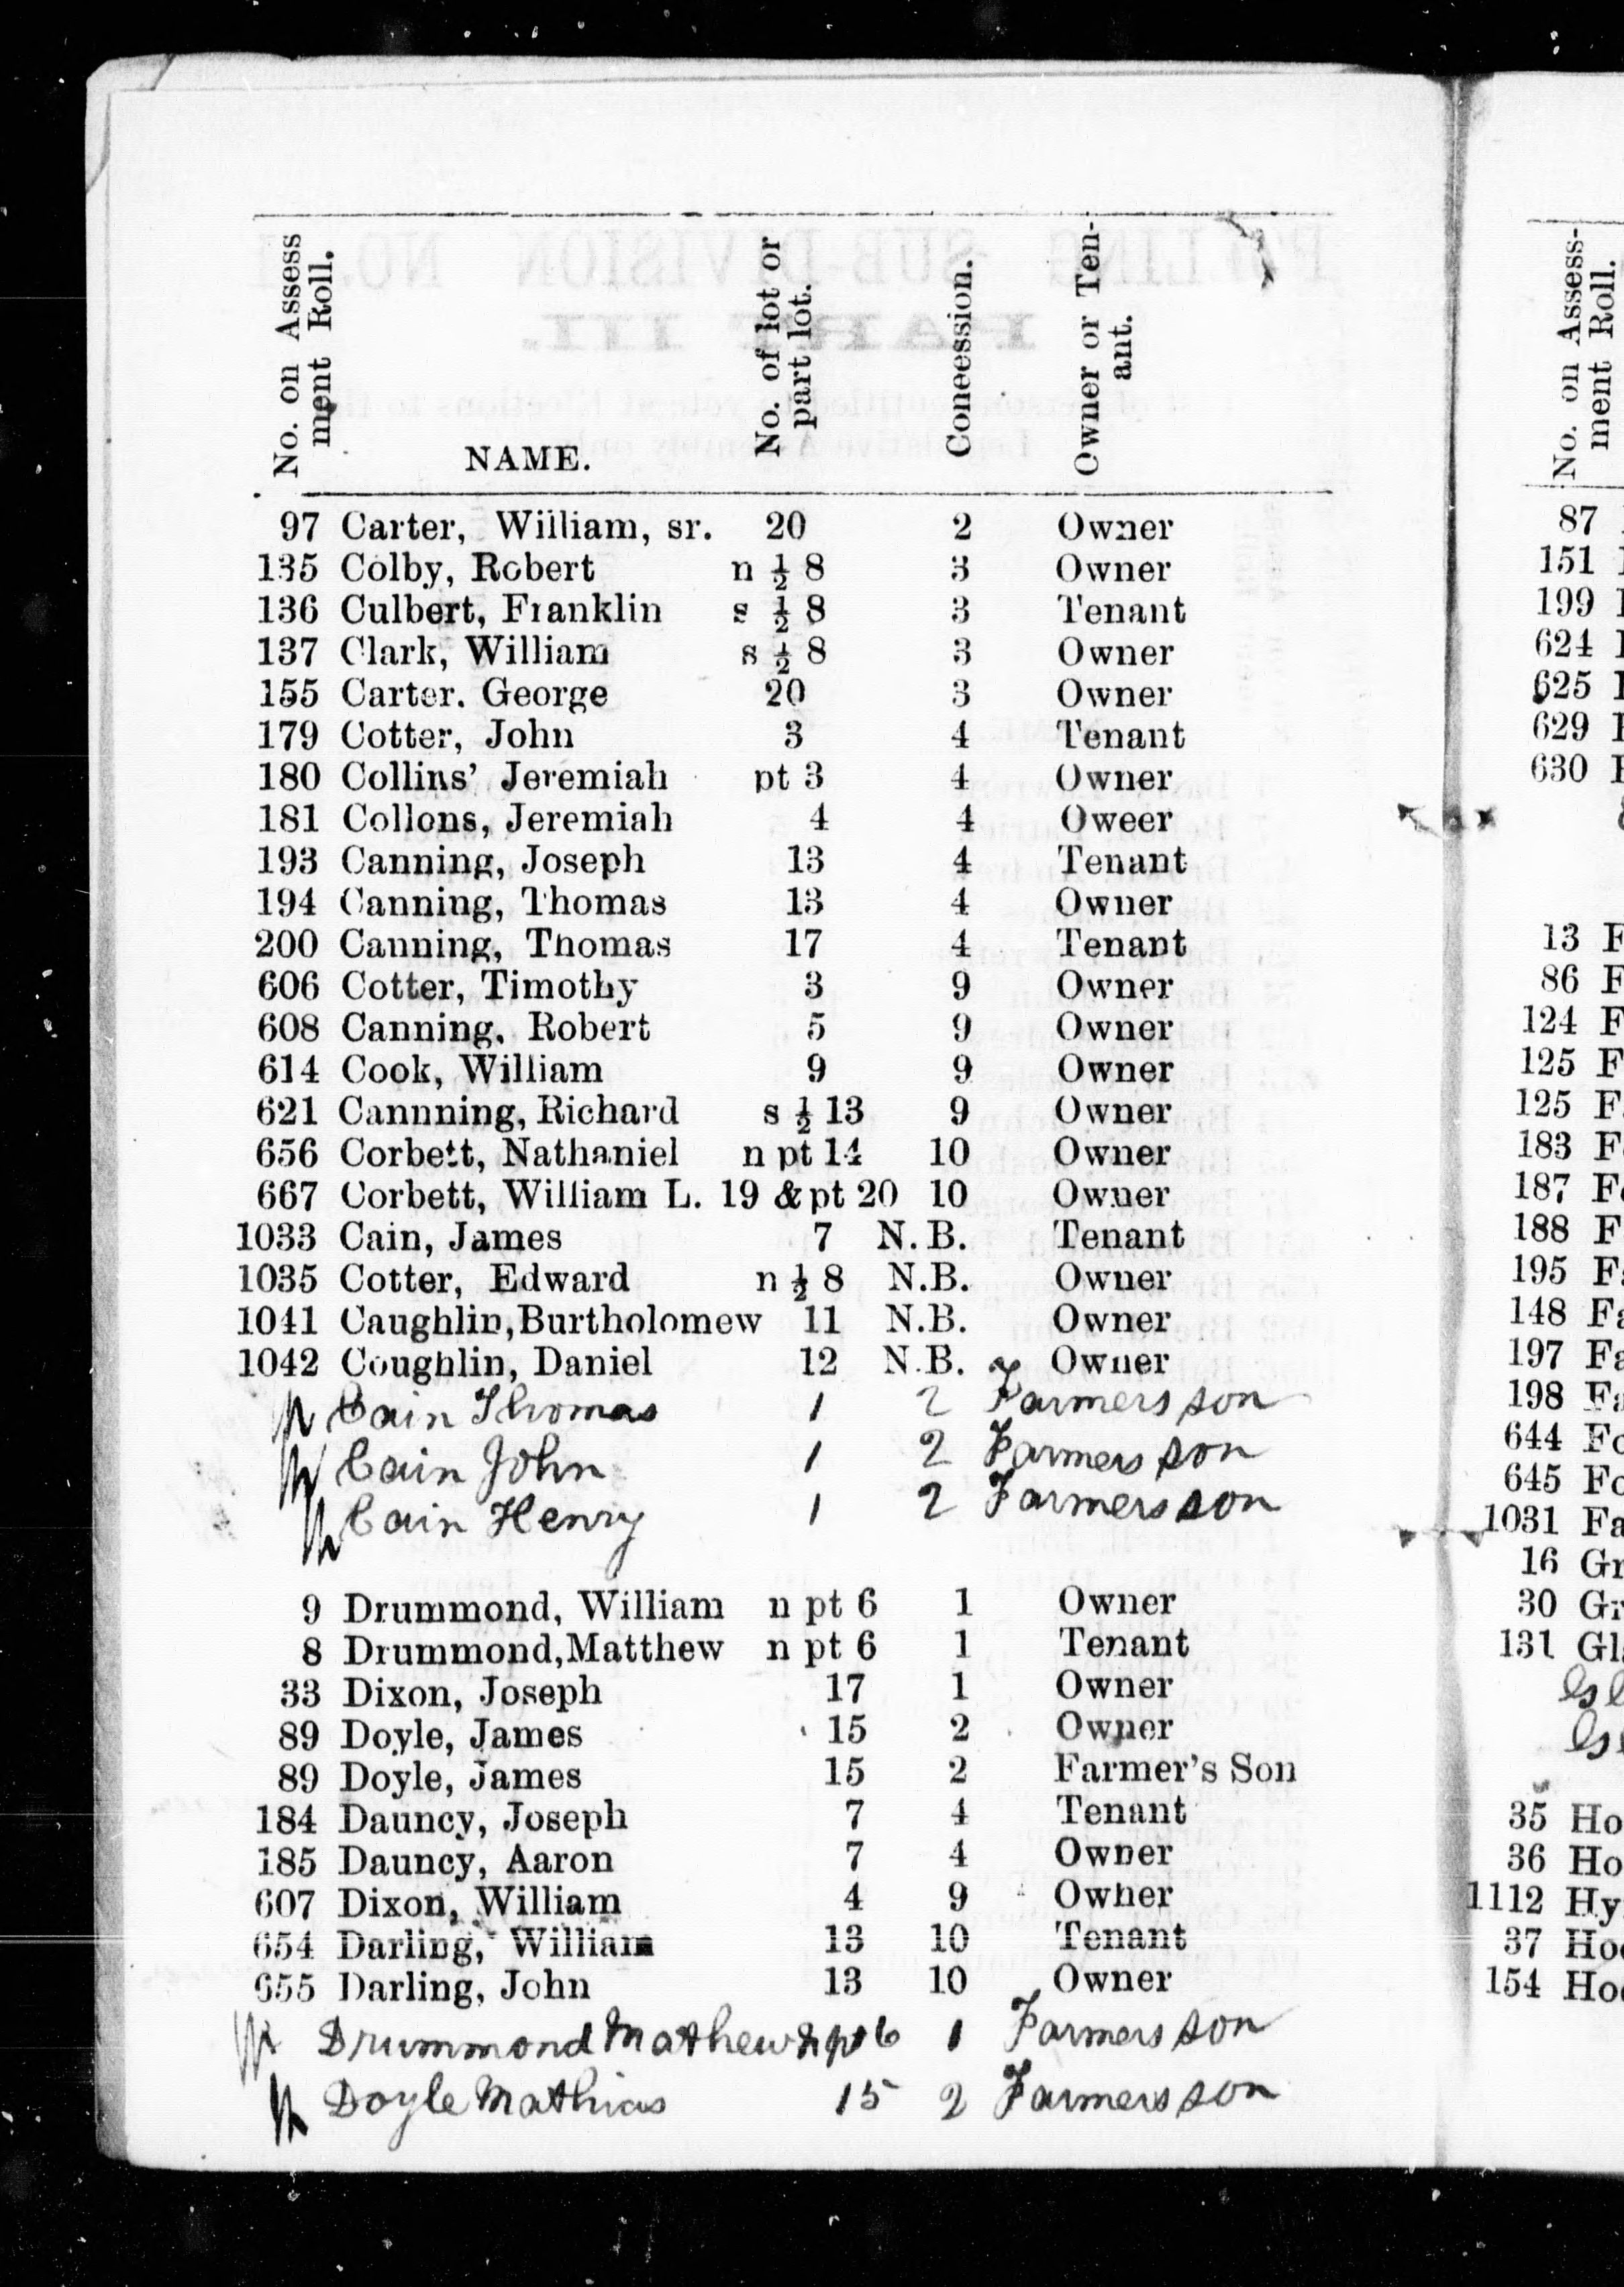 No. on Assess
ment Roll.
NAME.
No. of lot or
part lot.
Coneession.
Owner or Ten-
ant.
97 Carter, William, sr. 20 2 Owner
135 Colby, Robert n ½ 8 3 Owner
136 Culbert, Franklin s ½ 8 3 Tenant
137 Clark, William s ½ 8 3 Owner
155 Carter. George 20 3 Owner
179 Cotter, John 3 4 Tenant
180 Collins' Jeremiah pt 3 4 Owner
181 Collons, Jeremiah 4 4 Oweer
193 Canning, Joseph 13 4 Tenant
194 Canning, Thomas 13 4 Owner
200 Canning, Thomas 17 4 Tenant
606 Cotter, Timothy 3 9 Owner
608 Canning, Robert 5 9 Owner
614 Cook, William 9 9 Owner
621 Cannning, Richard s ½ 13 9 Owner
656 Corbett, Nathaniel n pt 14 10 Owner
667 Corbett, William L. 19 & pt 20 10 Owner
1033 Cain, James 7 N.B. Tenant
1035 Cotter, Edward n ½ 8 N.B. Owner
1041 Caughlin,Burtholomew 11 N.B. Owner
1042 Coughlin, Daniel 12 N.B. Owner
Cain Thomas 1 2 Farmers son
Cain John 1 2 Farmers son
Cain Henry 1 2 Farmers son
9 Drummond, William n pt 6 1 Owner
8 Drummond,Matthew n pt 6 1 Tenant
33 Dixon, Joseph 17 1 Owner
89 Doyle, James 15 2 Owner
89 Doyle, James 15 2 Farmer's Son
184 Dauncy, Joseph 7 4 Tenant
185 Dauncy, Aaron 7 4 Owner
607 Dixon, William 4 9 Owner
654 Darling, William 13 10 Tenant
655 Darling, John 13 10 Owner
Drummond Mathew n pt 6 1 Farmers son
Doyle Mathias 15 2 Farmers son
No. on Assess-
ment Roll.
87
151
199
624
625
629
630
13 F
86 F
124 F
125 F
125 F
183 F
187 F
188 F
195 F
148 Fa
197 Fa
198 Fa
644 Fo
645 Fo
1031 Fa
16 Gr
30 Gr
131 Gl
35 Ho
36 Ho
1112 Hy
37 Ho
154 Ho